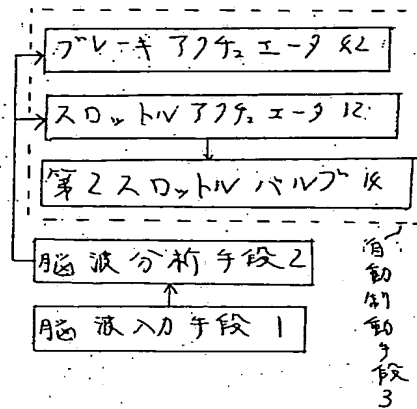 ブレーキアクチュエータ82
スロットルアクチュエータ12
第2スロットルバルブ14
脳波分析手段2
脳波入力手段1
自動制動手段3